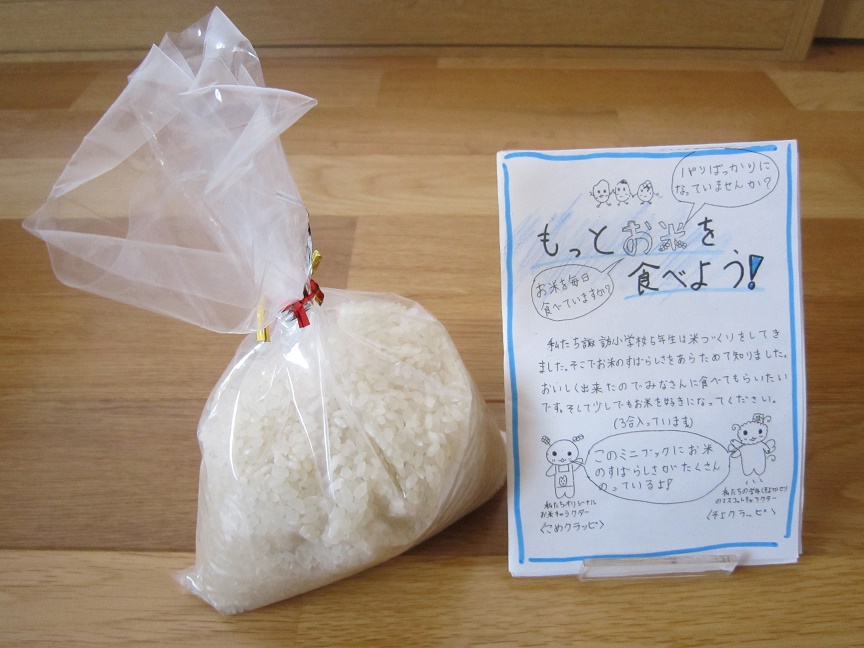 パンばっかりに
なっていませんか?
もっとお米を
食べよう!
お米を毎日
食べていますか?
私たち諏訪小学校5年生は米づくりをしてき
ました。そこでお米のすばらしさをあらためて知りました。
おいしく出来たのでみなさんに食べてもらいたい
です。そして少しでもお米を好きになってください。
(3合入っています)
このミニブックにお米
のすばらしさがたくさん
のっているよ!
私たちオリジナル
お米キャラクター
<こめクラッピ>
私たちの学年
のマスコットキャラクター
クラッピ>